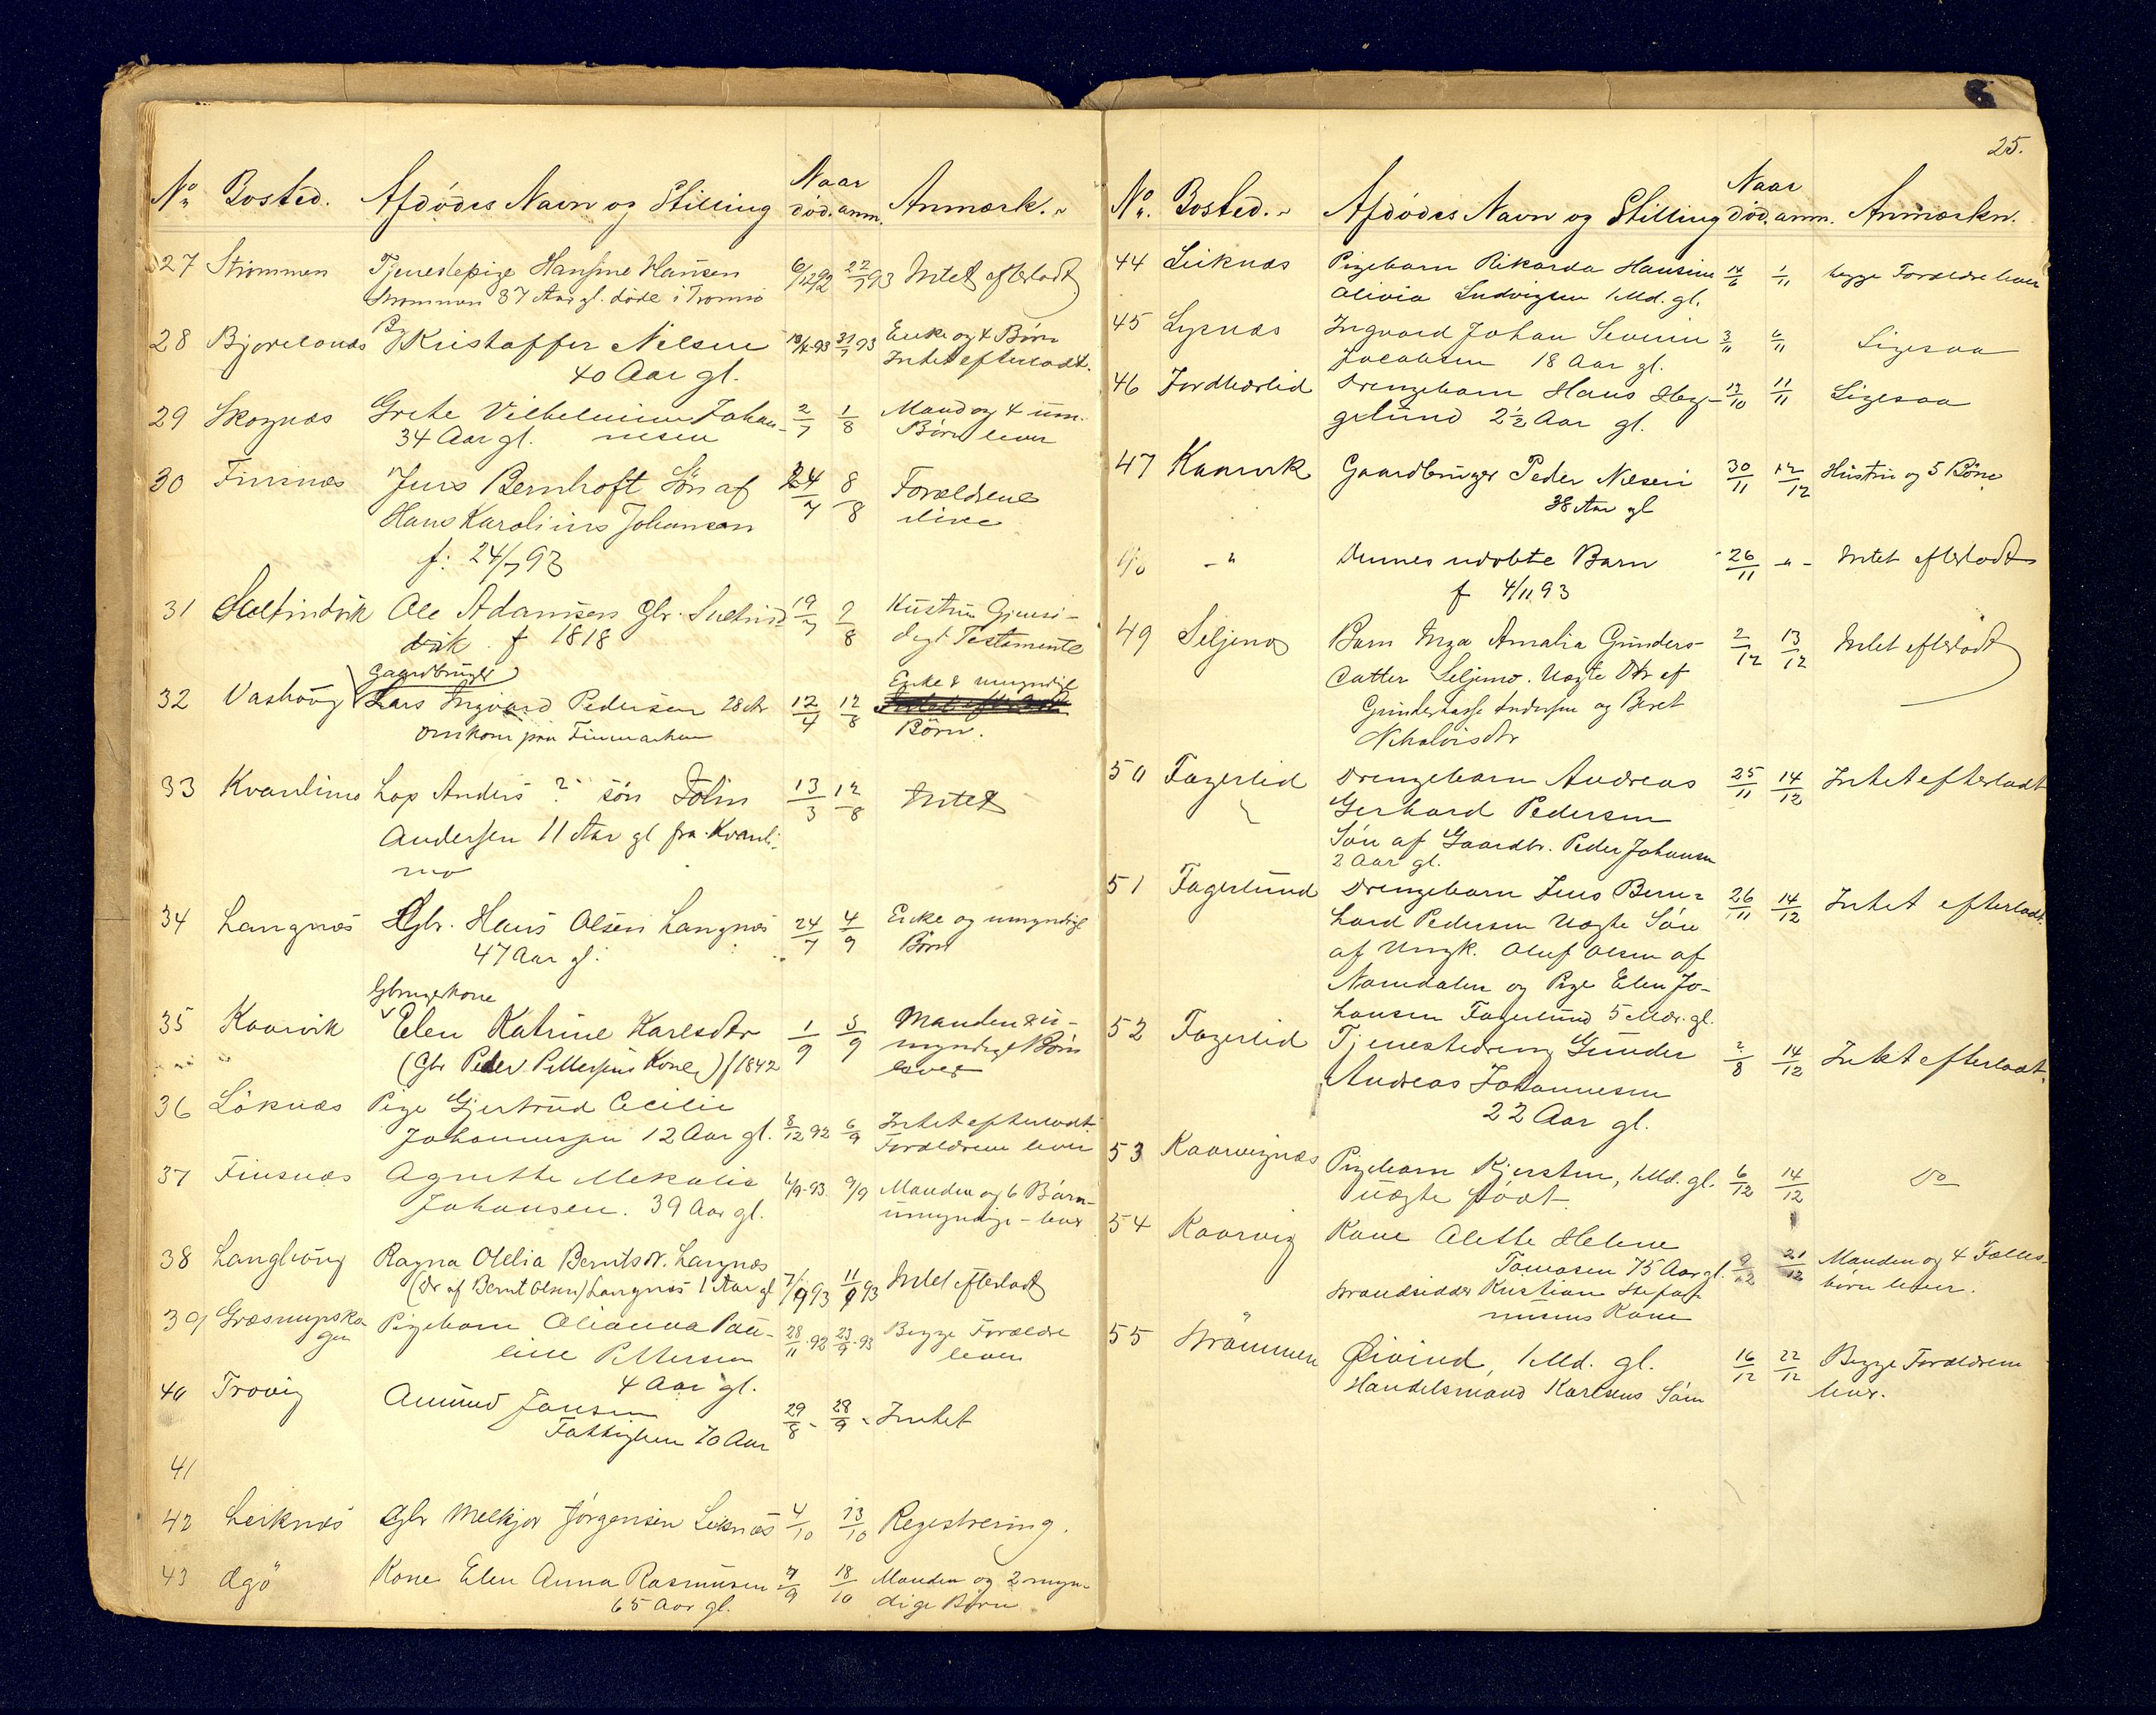 No Bosted. Afdödes Navn og Stilling Naar död. anm. Anmærk.
27 Strömmen Tjenestepige Hansine Hansen 6/12 92 22/7 93 Intet efterladt
Strömmen 37 Aar gl. døde i Tromsö
28 Bjorelvnæs Kristoffer Nilsen 10/4 93 31/7 93 Enke og 4 Börn
40 Aar gl. Intet efterladt.
29 Skognæs Grethe Vilhelmine Johan- 2/7 1/8 Mand og 4 um.
34 Aar gl. nesen Börn lever
30 Finsnæs Jens Bernhoft Sön af 24/7 8/8 Forældrene
Hans Karolius Johansen i live
f. 24/7 93
31 Sultindvik Ole Adamsen Gbr. Sultind- 19/7 9/8 Hustru Gjensi-
vik f 1818 digt Testamente
Gaardbruger Enke & umyndige
32 Vashaug Lars Ingvard Pedersen 28 Ar 12/4 12/8
omkom paa Finmarken Börn.
33 Kvanlimo Lap Anders ? sön Tolin 13/3 12/8 Intet
Andersen 11 Aar gl fra Kvanli-
mo
34 Langnæs Gbr. Hans Olsen Langnæs 24/7 4/9 Enke og umyndige
47 Aar gl. Börn
Gbrugerkone
35 Kaarvik Elen Katrine Karlsdtr 1/9 5/9 Manden & u-
(Gbr Peder Pettersens Kone) f 1842 myndige Börn
lever
36 Löknæs Pige Gjertrud Cecilie
Johannesen 12 Aar gl. 8/12 92 6/9 Intet efterladt.
Forældrene lever
37 Finsnæs Agnethe Mekalie 6/9 93 9/9 Manden og 6 Börn-
Johansen. 39 Aar gl. umyndige - lever
38 Langhaug Ragna Otelia Berntsdr. Langnæs
(Dr af Bernt Olsen) Langnæs 1 Aar gl 7/9 93 11/9 93 Intet efterladt
39 Græsmyrsko- Pigebarn Olianna Pau- 28/11 92 23/9 93 Begge Forældre
gen line Pettersen lever
4 Aar gl.
40 Trovig Amund Jensen 29/8 - 28/9 - Intet
Fattiglem 70 Aar
41
42 Leiknæs Gbr Melkjor Jörgensen Leknæs 4/10 13/10 Registrering.
43 Ægö Kone Elen Anna Rasmusen 7/9 18/10 Manden og 2 myn-
65 Aar gl. dige Börn
25.
No. Bosted. Afdödes Navn og Stilling Naar död. anm. Anmærkn.
44 Leiknæs Pigebarn Rikarda Hansine 14/6 1/11 begge Forældre lever
Olivia Ludvigsen 1 Md. gl.
45 Lysnæs Ingvard Johan Severin 3/11 6/11 Ligesaa
Jacobsen 18 Aar gl.
46 Jordbærlid Drengebarn Hans Heg- 13/10 11/11 Ligesaa
gelund 2½ Aar gl.
47 Kaarvik Gaardbruger Peder Nilsen 30/11 12/12 Hustru og 5 Börn
38 Aar gl
-"- Dennes udöbte Barn 26/11 -"- Intet efterladt
f 4/11 93
49 Seljemo Barn Inga Amalia Gunders- 2/12 13/12 Intet efterladt
datter Seljemo. Uægte Dtr af
Andersen og Beret
Nikolaisdtr
50 Fagerlid Drengebarn Andreas 25/11 14/12 Intet efterladt
Gerhard Pedersen
Sön af Gaardbr. Peder Johansen
2 Aar gl.
51 Fagerlund Drengebarn Jens Bern- 26/11 14/12 Intet efterladt.
hard Pedersen Uægte Sön
af Ungk. Oluf Olsen af
Namdalen og Pige Elen Jo-
hansen Fagerlund 5 Mdr. gl.
52 Fagerlid Tjenestedreng Gunder 2/8 14/12 Intet efterladt.
Andreas Johannesen
22 Aar gl.
53 Kaarvignæs Pigebarn Kjersten, 1 Md. gl. 6/12 14/12 Do
uægte födt.
54 Kaarvig Kone Alette Helene
Tomasen 75 Aar gl. 9/12 21/12 Manden og 4 Fælles-
Strandsidder Kristian Stefan- börn lever.
nusens Kone
55 Strömmen Öivind, 1 Md. gl. 16/12 22/12 Begge Forældrene
Handelsmand Karlsens Sön lever.